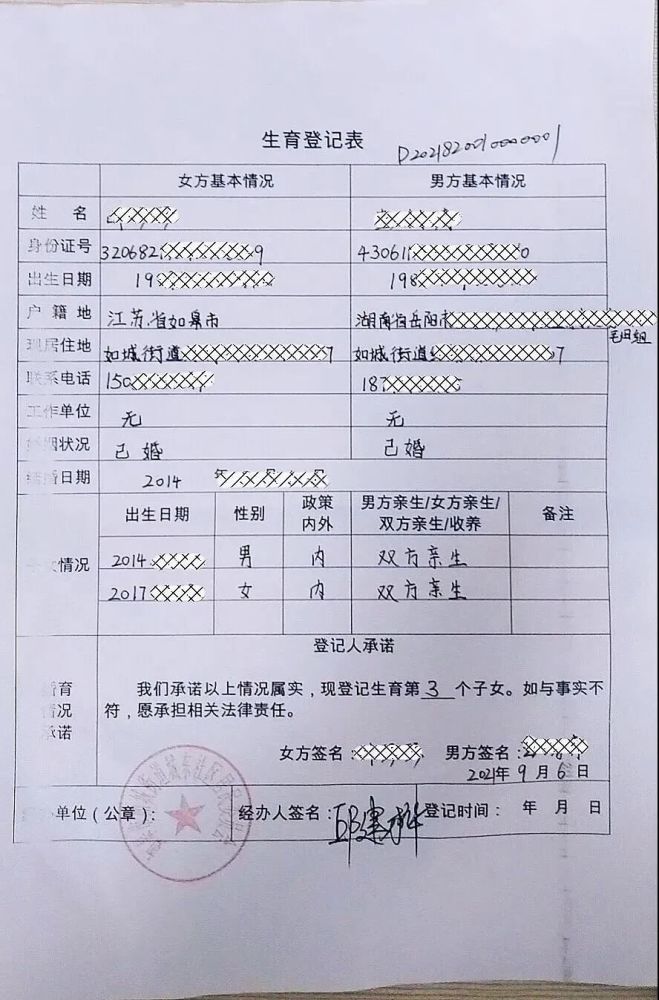 生育登记表
D2021820010000001
女方基本情况 男方基本情况
姓 名
身份证号 320682 9 430611 0
出生日期 19 198
户籍地 江苏省如皋市 湖南省岳阳市
毛田组
现居住地 如城街道 7 如城街道 7
联系电话 150 187
工作单位 无 无
婚姻状况 已婚 已婚
结婚日期 2014
子女情况
出生日期 性别 政策内外 男方亲生/女方亲生/双方亲生/收养 备注
2014 男 内 双方亲生
2017 女 内 双方亲生
登记人承诺
生育情况承诺
我们承诺以上情况属实，现登记生育第3个子女。如与事实不
符，愿承担相关法律责任。
女方签名： 男方签名：
2021年9月6日
经办单位（公章）： 经办人签名： 登记时间： 年 月 日